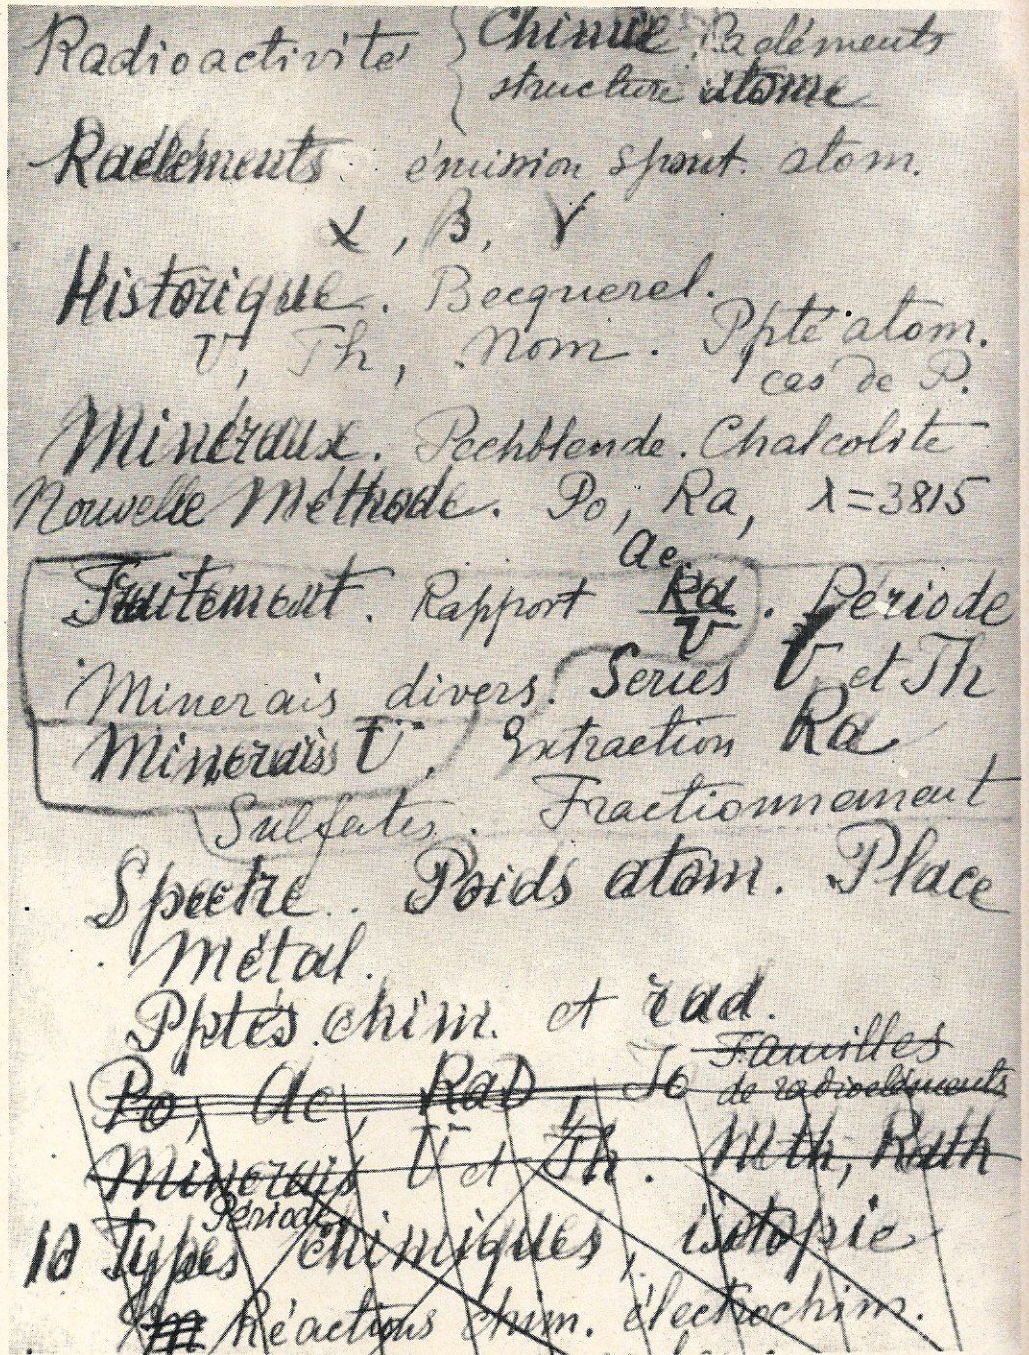 Radioactivité { Chimie Raéléments
structure atome
Raéléments émission spont. atom.
α, β, γ
Historique. Becquerel.
U, Th, Nom. Ppté atom.
cas de P.
Minéraux. Pechblende. Chalcolite
Nouvelle Méthode. Po, Ra, λ=3815
Ac
Traitement. Rapport Ra/U. Période
Minerais divers. Series U et Th
Minerais U. Extraction Ra
Sulfates. Fractionnement
Spectre. Poids atom. Place
Métal.
Pptés chim. et rad.
Familles
Po, Ac, RaD, Io de radioéléments
Minerais U et Th. Mth, Rath
Période
10 Types chimiques, isotopie
Réactions chim. électrochim.